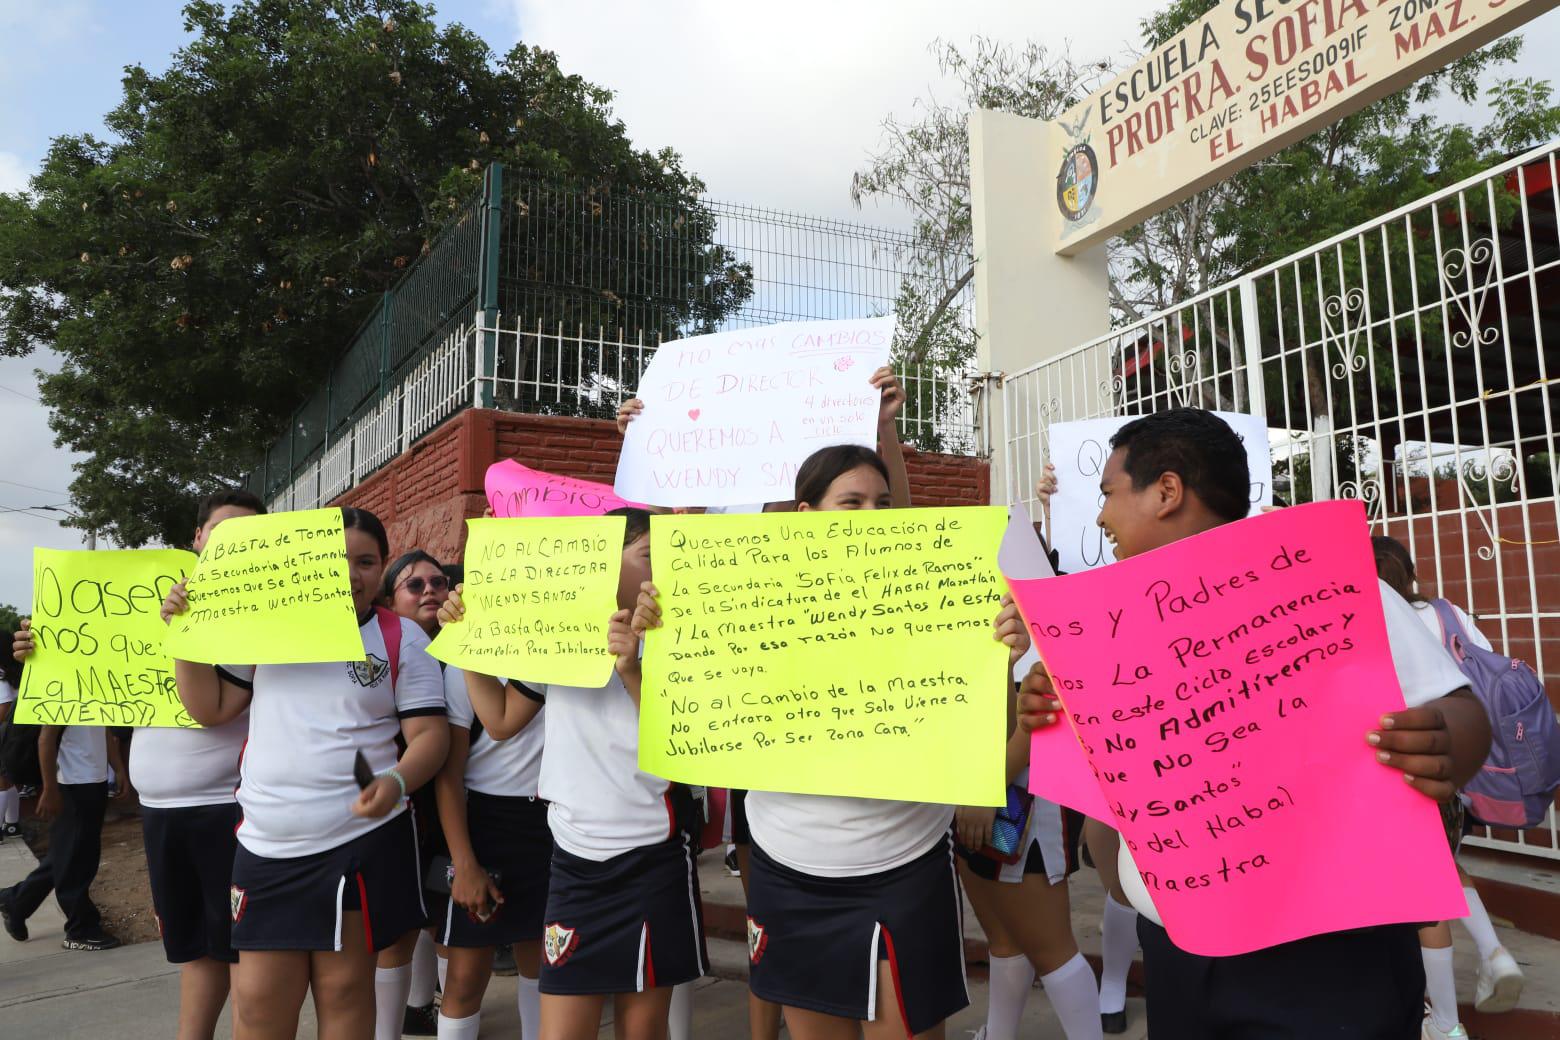 ESCUELA
PROFRA. SOFIA
CLAVE: 25EES0091F ZONA
EL HABAL MAZ.
No mas CAMBIOS
DE DIRECTOR
4 directores
en un solo
ciclo
QUEREMOS A
WENDY
cambios
La MAESTR
WENDY
Ya BASTA DE Tomar
La Secundaria de Trampolin
Queremos que Se Quede la
Maestra Wendy Santos"
NO AL CAMBIO
DE LA DIRECTORA
"WENDY SANTOS"
Ya Basta Que Sea un
Trampolin Para Jubilarse
Queremos Una Educación de
Calidad Para los Alumnos de
La Secundaria "Sofia Felix de Ramos"
De la Sindicatura de el HABAL Mazatlán
Y La Maestra "Wendy Santos la esta
Dando Por esa razón No queremos
Que Se vaya.
"No al Cambio de la Maestra
No Entrara otro que Solo Viene a
Jubilarse Por Ser Zona Cara."
nos y Padres de
La Permanencia
en este Ciclo Escolar y
No Admitiremos
que No Sea la
dy Santos"
del Habal
Maestra